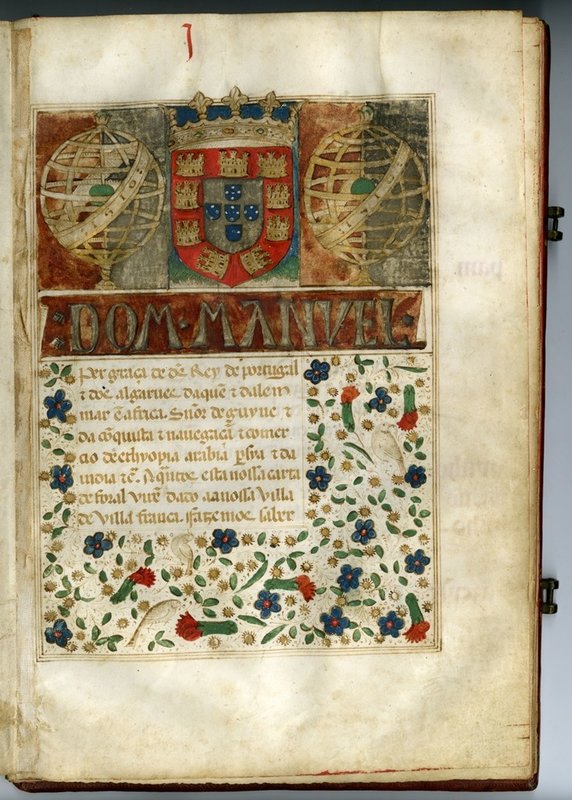 J
DOM·MANVEL·
Per graça de ds̃ Rey de portugal
⁊ dos algarues daquē ⁊ dalem
mar ē africa. Snõr de guynee ⁊
da cõquista ⁊ nauegaçã ⁊ comer
cio de ethyopia arabia persia ⁊ da
india tc̃. A quātos esta nossa carta
de foral virẽ dado aa nossa villa
de villa franca. fazemos saber